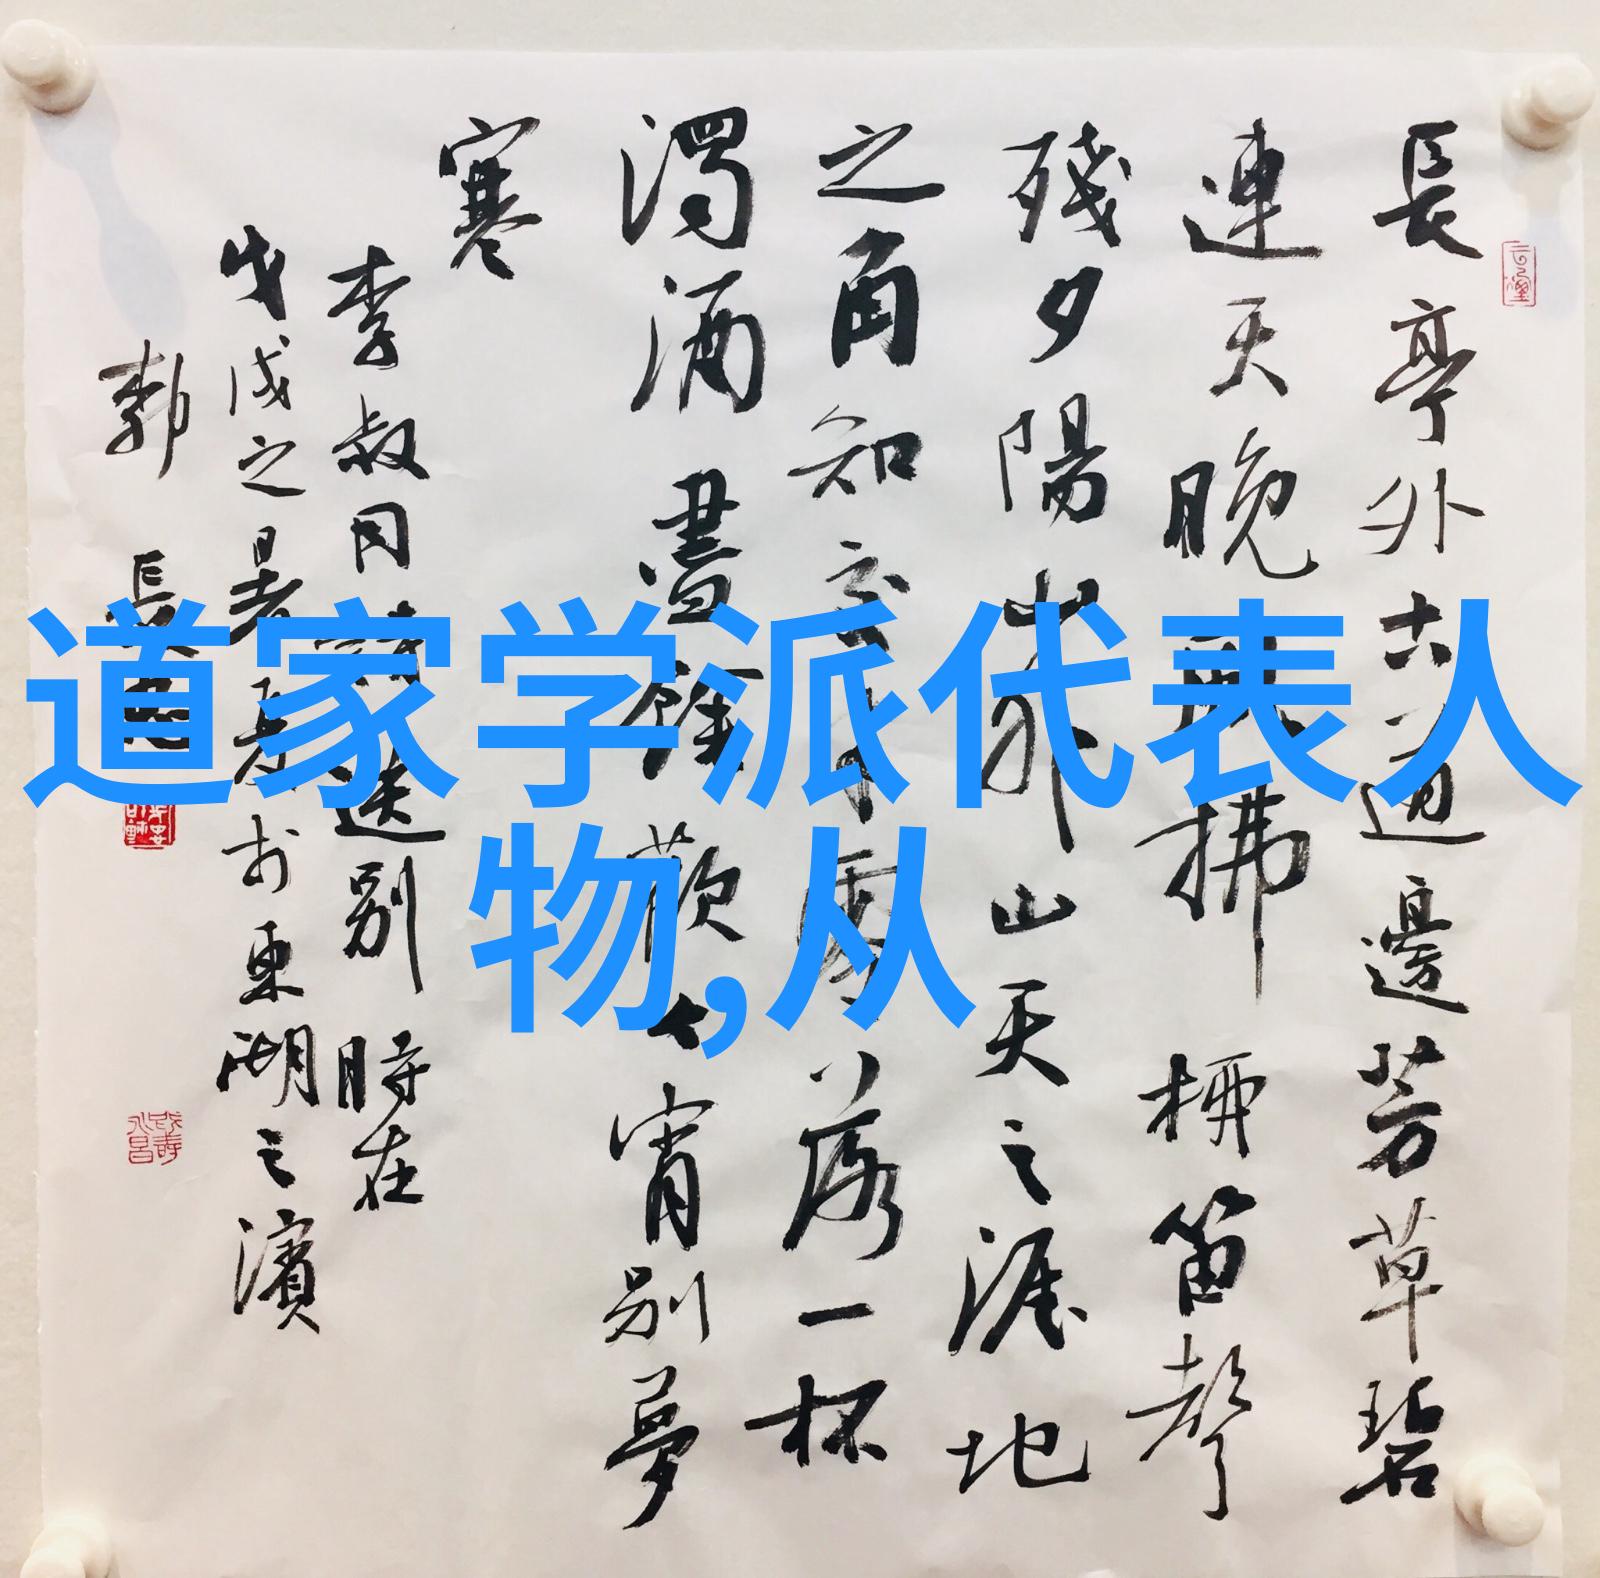 長亭外古道邊芳草碧
連天晚風拂柳笛聲
殘夕陽山外山天之涯地
之角知交半零落一杯
濁酒盡餘歡今宵别夢
寒
李叔同詩送别 時在
戊戌之暑月書於東湖之濱
郭 長
道家学派代表人
物,从